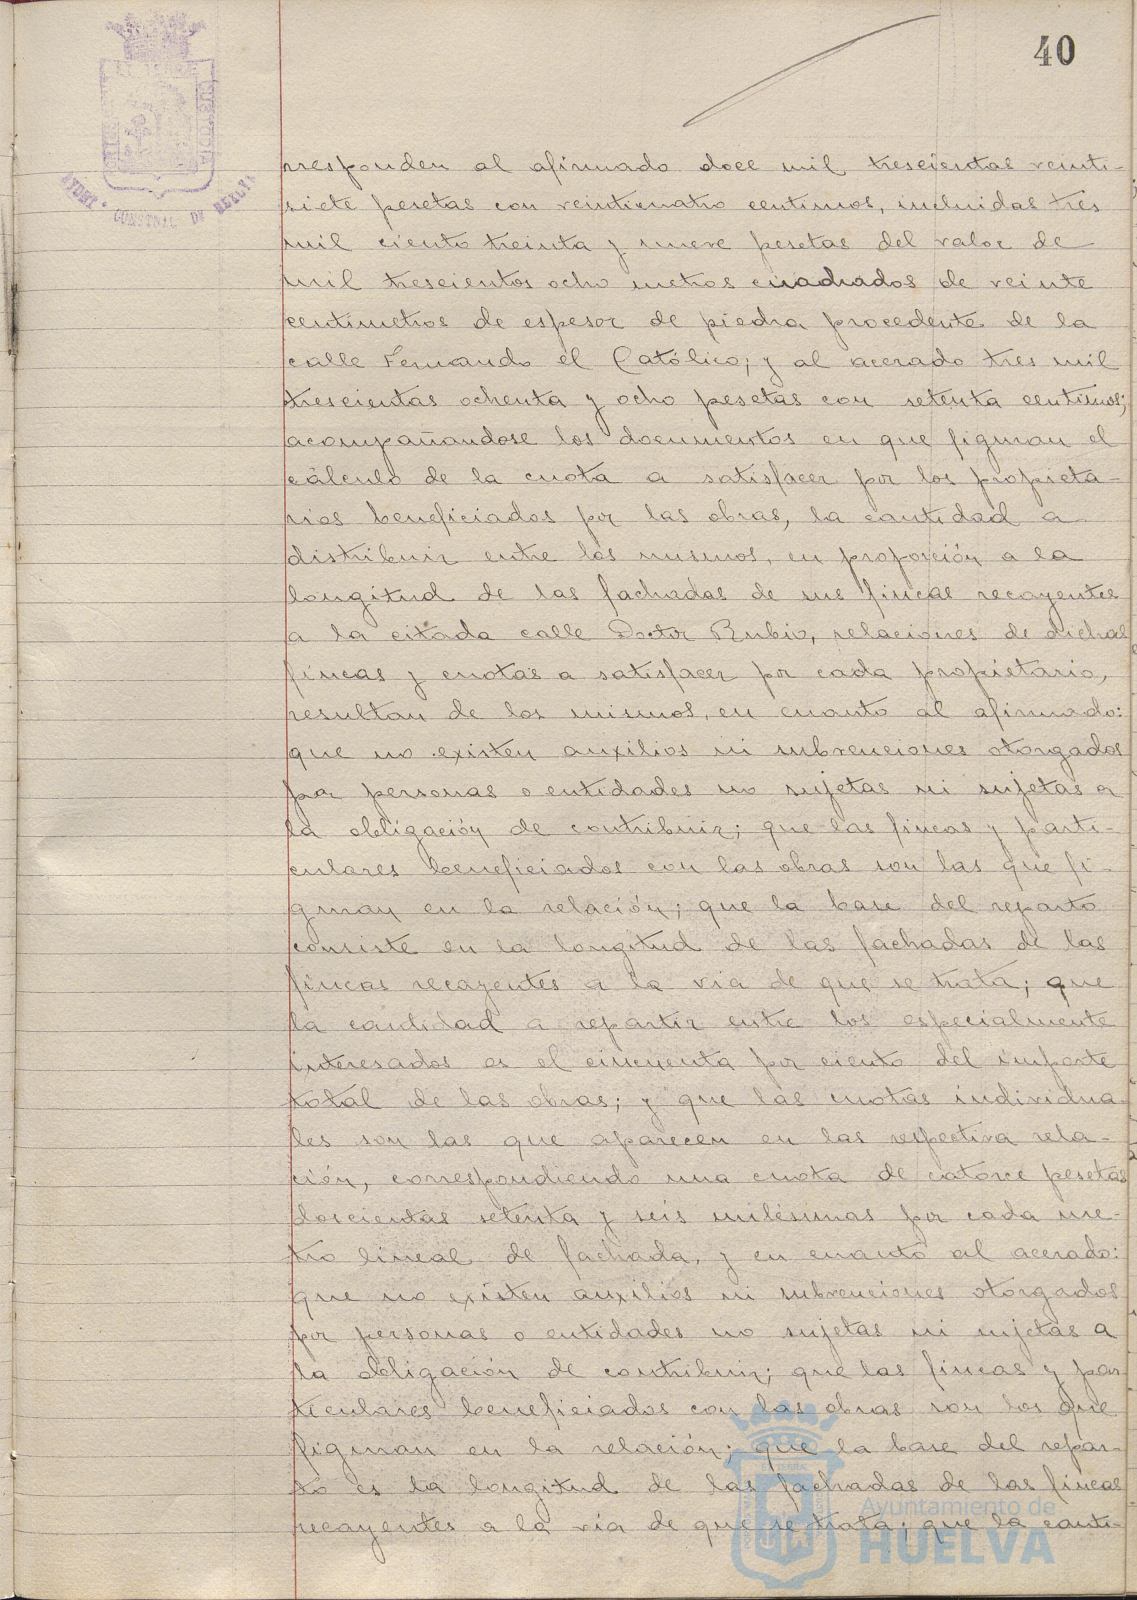 40
AYUNT. CONSTNAL DE HUELVA
rresponden al afirmado doce mil trescientas veinti-
siete pesetas con veinticuatro centimos, incluidas tres
mil ciento treinta y nueve pesetas del valor de
mil trescientos ocho metros cuadrados de veinte
centimetros de espesor de piedra procedente de la
calle Fernando el Católico; y al acerado tres mil
trescientas ochenta y ocho pesetas con setenta centimos;
acompañandose los documentos en que figuran el
cálculo de la cuota a satisfacer por los propieta-
rios beneficiados por las obras, la cantidad a
distribuir entre los mismos, en proporción a la
longitud de las fachadas de sus fincas recayentes
a la citada calle Doctor Rubio, relaciones de dichas
fincas y cuotas a satisfacer por cada propietario,
resultan de los mismos, en cuanto al afirmado:
que no existen auxilios ni subvenciones otorgados
por personas o entidades no sujetas ni sujetas a
la obligación de contribuir; que las fincas y parti-
culares beneficiados con las obras son las que fi-
guran en la relación; que la base del reparto
consiste en la longitud de las fachadas de las
fincas recayentes a la via de que se trata; que
la cantidad a repartir entre los especialmente
interesados es el cincuenta por ciento del importe
total de las obras; y que las cuotas individua-
les son las que aparecen en las respectiva rela-
ción, correspondiendo una cuota de catorce pesetas
doscientas setenta y seis milésimas por cada me-
tro lineal de fachada, y en cuanto al acerado:
que no existen auxilios ni subvenciones otorgados
por personas o entidades no sujetas ni sujetas a
la obligación de contribuir; que las fincas y par
ticulares beneficiados con las obras son los que
figuran en la relación; que la base del repar-
to es la longitud de las fachadas de las fincas
recayentes a la via de que se trata; que la canti-
Ayuntamiento de
HUELVA